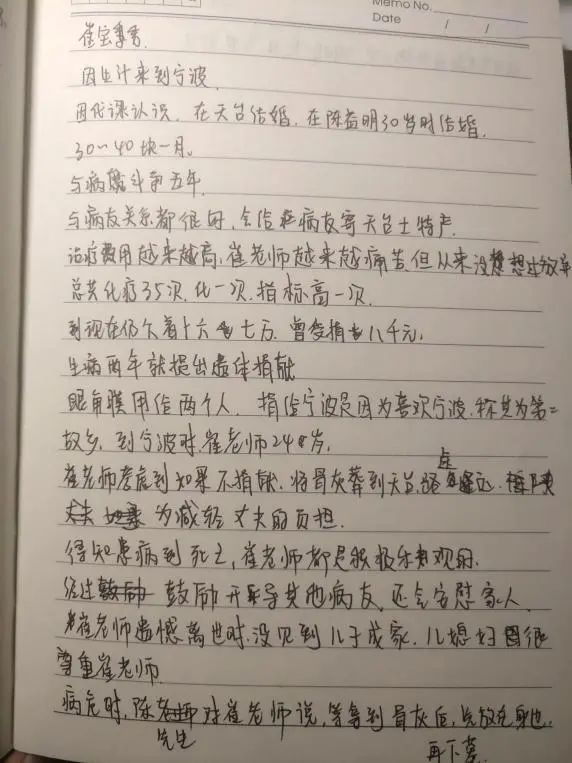 Memo No.
Date / /
崔宝事
因生计来到宁波
因代课认识、在天台结婚、在陈益明30岁时结婚.
30~40块一月。
与病魔斗争五年
与病友关系都很好、会给病友寄天台土特产.
治疗费用越来越高、崔老师越来越痛苦、但从来没想过放弃
总共化疗35次、化一次、指标高一次.
到现在仍欠着十六七万、曾受捐八千元.
生病两年就提出遗体捐献
眼角膜用给两个人、捐给宁波是因为喜欢宁波、称其为第二
故乡、到宁波时、崔老师24岁.
崔老师考虑到如果不捐献、将骨灰葬到天台、路遥远、
为减轻丈夫的负担.
得知患病到死亡、崔老师都是积极乐观的.
经过 鼓励开导其他病友、还会安慰家人.
崔老师遗憾离世时、没见到儿子成家、儿媳妇很
尊重崔老师.
病危时、陈先生对崔老师说、等拿到骨灰后、先放
再下葬.